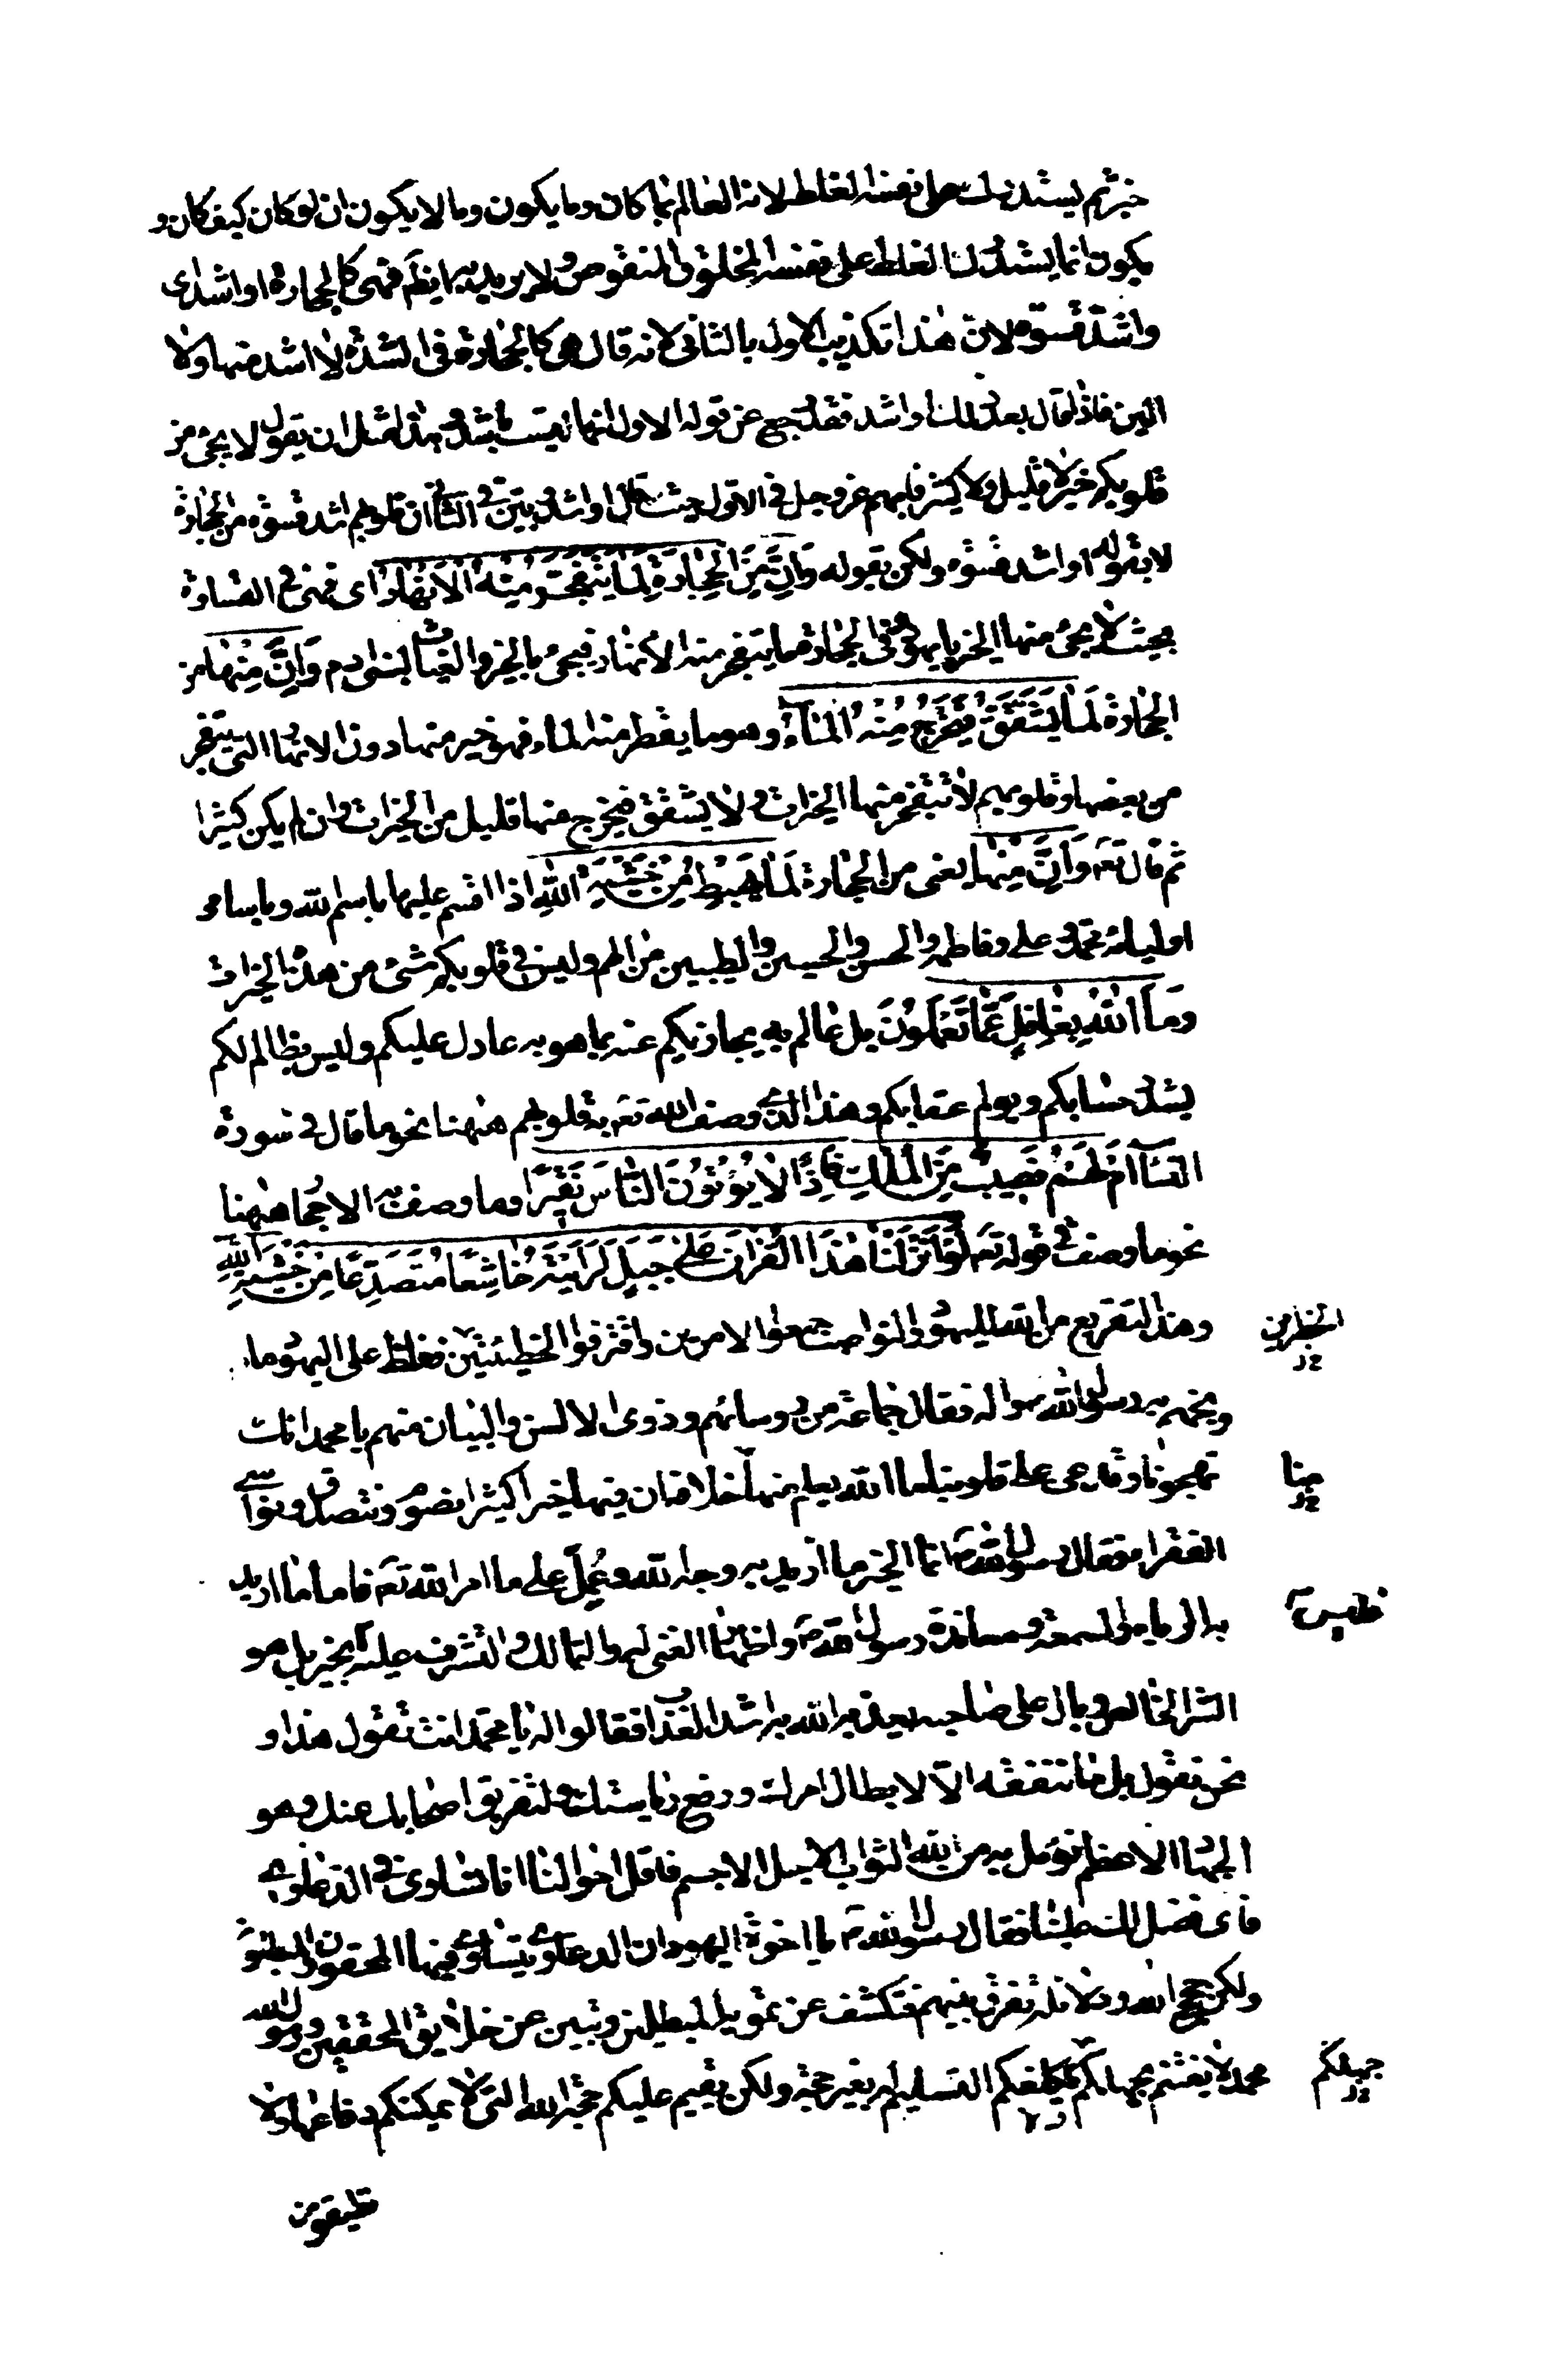 خبر ثم يستدرك على نفسه الغلط لانه العالم بما كان وما يكون وما لا يكون ان لو كان كيف كان و
يكون انما يستدرك الغلط على نفسه المخلوق المنقوص ولا يريد به ايضا فهي كالحجارة او اشد اى
واشد قسوة لان هذا تكذيب الاول بالثانى لانه قال هى كالحجارة فى الشدة لا اشد منها ولا
الين فاذا قال بعد ذلك او اشد فقد رجع عن قوله الاول انها ليست باشد وهذا مثل ان يقول لا يجىء من
قلوبكم خير لا قليل ولا كثير فابهم عز وجل فى الاول حيث قال او اشد وبين فى الثانى ان قلوبهم اشد قسوة من الحجارة
لا بقوله او اشد قسوة ولكن بقوله وَاِنَّ مِنَ الْحِجَارَةِ لَمَا يَتَفَجَّرُ مِنْهُ الْاَنْهَارُ اى فهى فى القساوة
بحيث لا يجىء منها الخير يا يهود وفى الحجارة ما يتفجر منه الانهار فيجىء بالخير والغياث لبنى ادم وَاِنَّ مِنْهَا من
الحجارة لَمَا يَشَّقَّقُ فَيَخْرُجُ مِنْهُ الْمَاءُ وهو ما يقطر منه الماء فهو خير منها دون الانهار التى يتفجر
من بعضها وقلوبهم لا تتفجر منها الخيرات ولا يشقق فيخرج منها قليل من الخيرات وان لم يكن كثيرا
ثم قال تعه وَاِنَّ مِنْهَا يعنى من الحجارة لَمَا يَهْبِطُ مِنْ خَشْيَةِ اللهِ اذا اقسم عليها باسم الله وباسامى
اوليائه محمد وعلى وفاطمه والحسن والحسين والطيبين من الهم وليس فى قلوبكم شىء من هذه الخيرات
وَمَا اللهُ بِغَافِلٍ عَمَّا تَعْمَلُونَ بل عالم به يجازيكم عنه بما هو به عادل عليكم وليس بظالم لكم
يشدد حسابكم ويولم عقابكم وهذا الذى وصف الله تعه به قلوبهم هيهنا نحو ما قال فى سورة
النساء اَمْ لَهُمْ نَصِيبٌ مِنَ الْمُلْكِ فَاِذًا لَا يُؤْتُونَ النَّاسَ نَقِيرًا وما وصف به الاحجار هيهنا
نحو ما وصف فى قوله تعه لَوْ اَنْزَلْنَا هٰذَا الْقُرْاٰنَ عَلٰى جَبَلٍ لَرَاَيْتَهُ خَاشِعًا مُتَصَدِّعًا مِنْ خَشْيَةِ اللهِ
وهذا التقريع من الله لليهود والنواصب جمعوا الامرين واقترفوا الخطيئتين فغلظ على اليهود ما
الخطرين
وبخهم به رسول الله ص واله فقال جماعة من روسائهم وذوى الالسن والبيان منهم يا محمد انك
تهجونا وتدعى على قلوبنا ما الله يعلم منها خلافه ان فيها خيرا كثيرا نصوم ونتصدق ونواسى
منا
الفقراء فقال رسول الله ص انما الخير ما اريد به وجه الله وعمل على ما امر الله تعه فاما ما اريد
به الرياء والسمعة ومعاندة رسول الله ص واظهار الغنى له والتمالك والتشرف عليه فليس بخير بل هو
فليس
الشر الخالص وبال على صاحبه يعذبه الله به اشد العذاب فقالوا له يا محمد انت تقول هذا و
نحن نقول بل ما ننفقه الا لابطال امرك ودفع رياستك ولتفريق اصحابك عنك وهو
الجهاد الاعظم نؤمل به من الله الثواب الاجل الاجسم فاقل احوالنا انا تساوى فى الدعاوى
فاى فضل لك علينا فقال رسول الله ص يا اخوة اليهود ان الدعاوى يتساوى فيها المحقون والمبطلون
ولكن حجج الله ودلائله تفرق بينهم فتكشف عن تمويه المبطلين وتبين عن حقايق المحققين ورسول الله
محمد لا يغتنم جهلكم ولا يكلفكم التسليم له بغير حجة ولكن يقيم عليكم حجة الله التى لا يمكنكم دفاعها ولا
جهلكم
تطيقون